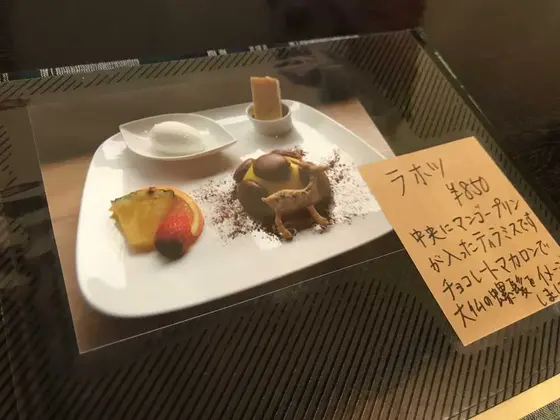 ラホツ
¥850
中央にマンゴープリン
が入ったティラミスです
チョコレートマカロンで
大仏の螺髪を